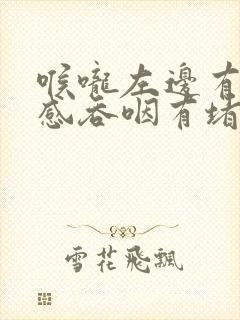 喉嚨左邊有
感吞咽有堵
雪花飛飄